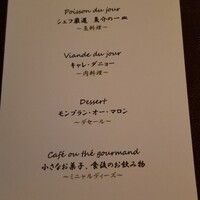 Poisson du jour
シェフ厳選 魚介の一皿
～魚料理～
Viande du jour
キャレ・ダニョー
～肉料理～
Dessert
モンブラン・オー・マロン
～デセール～
Café ou thé gourmand
小さなお菓子、食後のお飲み物
～ミニャルディーズ～